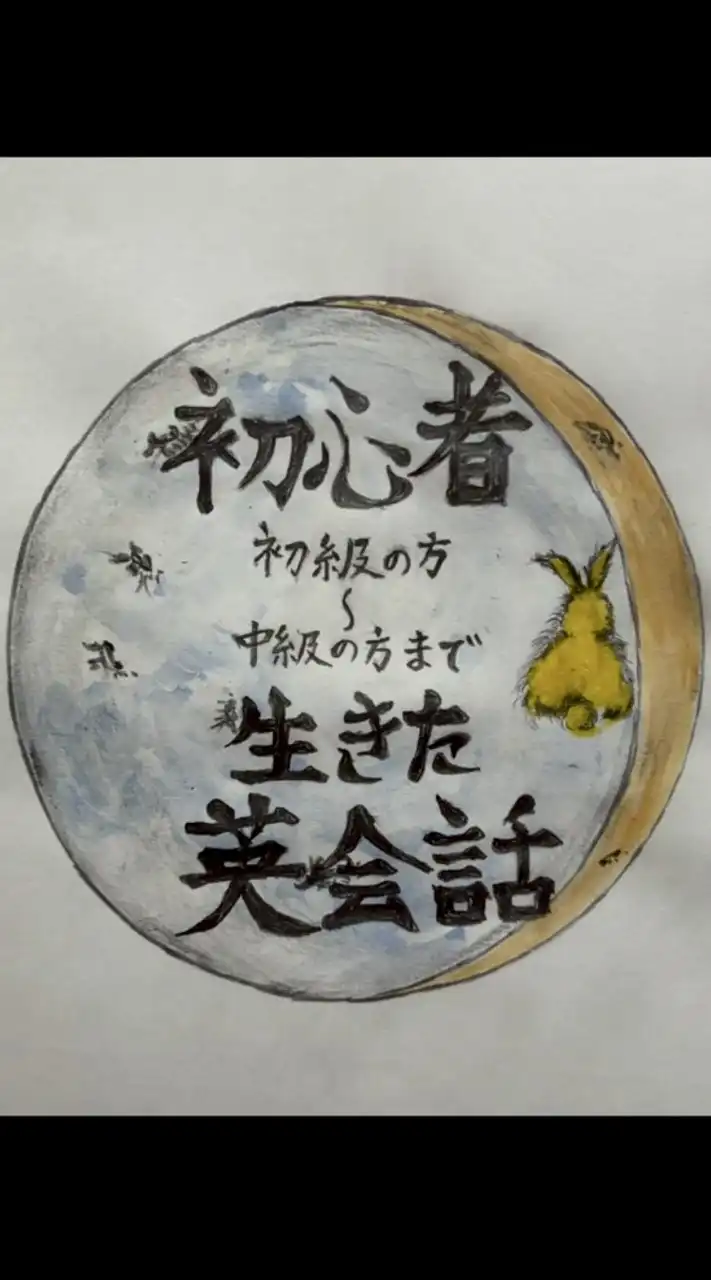 初心者
初級の方
〜
中級の方まで
生きた
英会話